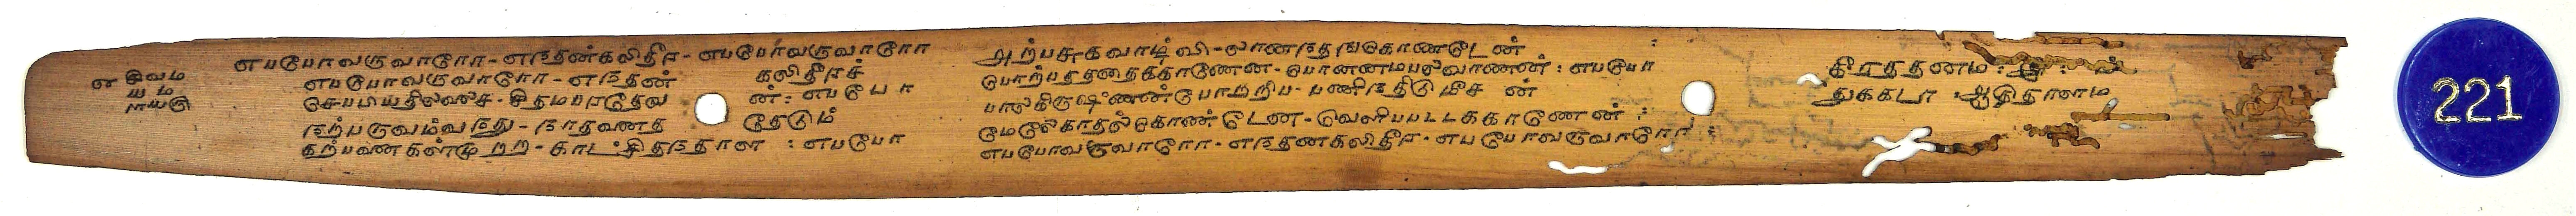 சிவம
யம
எபபோவருவாரோ - எநதன்கலிதீர - எபபோவருவாரோ
எபபோவருவாரோ - எநதன் கலிதீரச்
செபபியதிலலைச - சிதமபரதேவ ன் : எபபோ
நற்பருவம்வநது - நாதனைத தேடும்
கற்பனைகள்முறற - காடசிதநதாள : எபபோ
அற்பசுகவாழ்வி - லானநதஙகொணடேன்
பொற்பததைககாணேன - பொனனமபலவாணன் : எபபோ
பாலகிருஷ்ணன்போற்றிப - பணிநதிடுமீச ன்
மேலேகாதல்கொண்டேன - வெளிபபடடககாணேன் :
எபபோவருவாரோ - எநதனகலிதீர - எபபோவருவாரோ :
கீரததனம :
துககடா : ஆதிதாளம
221